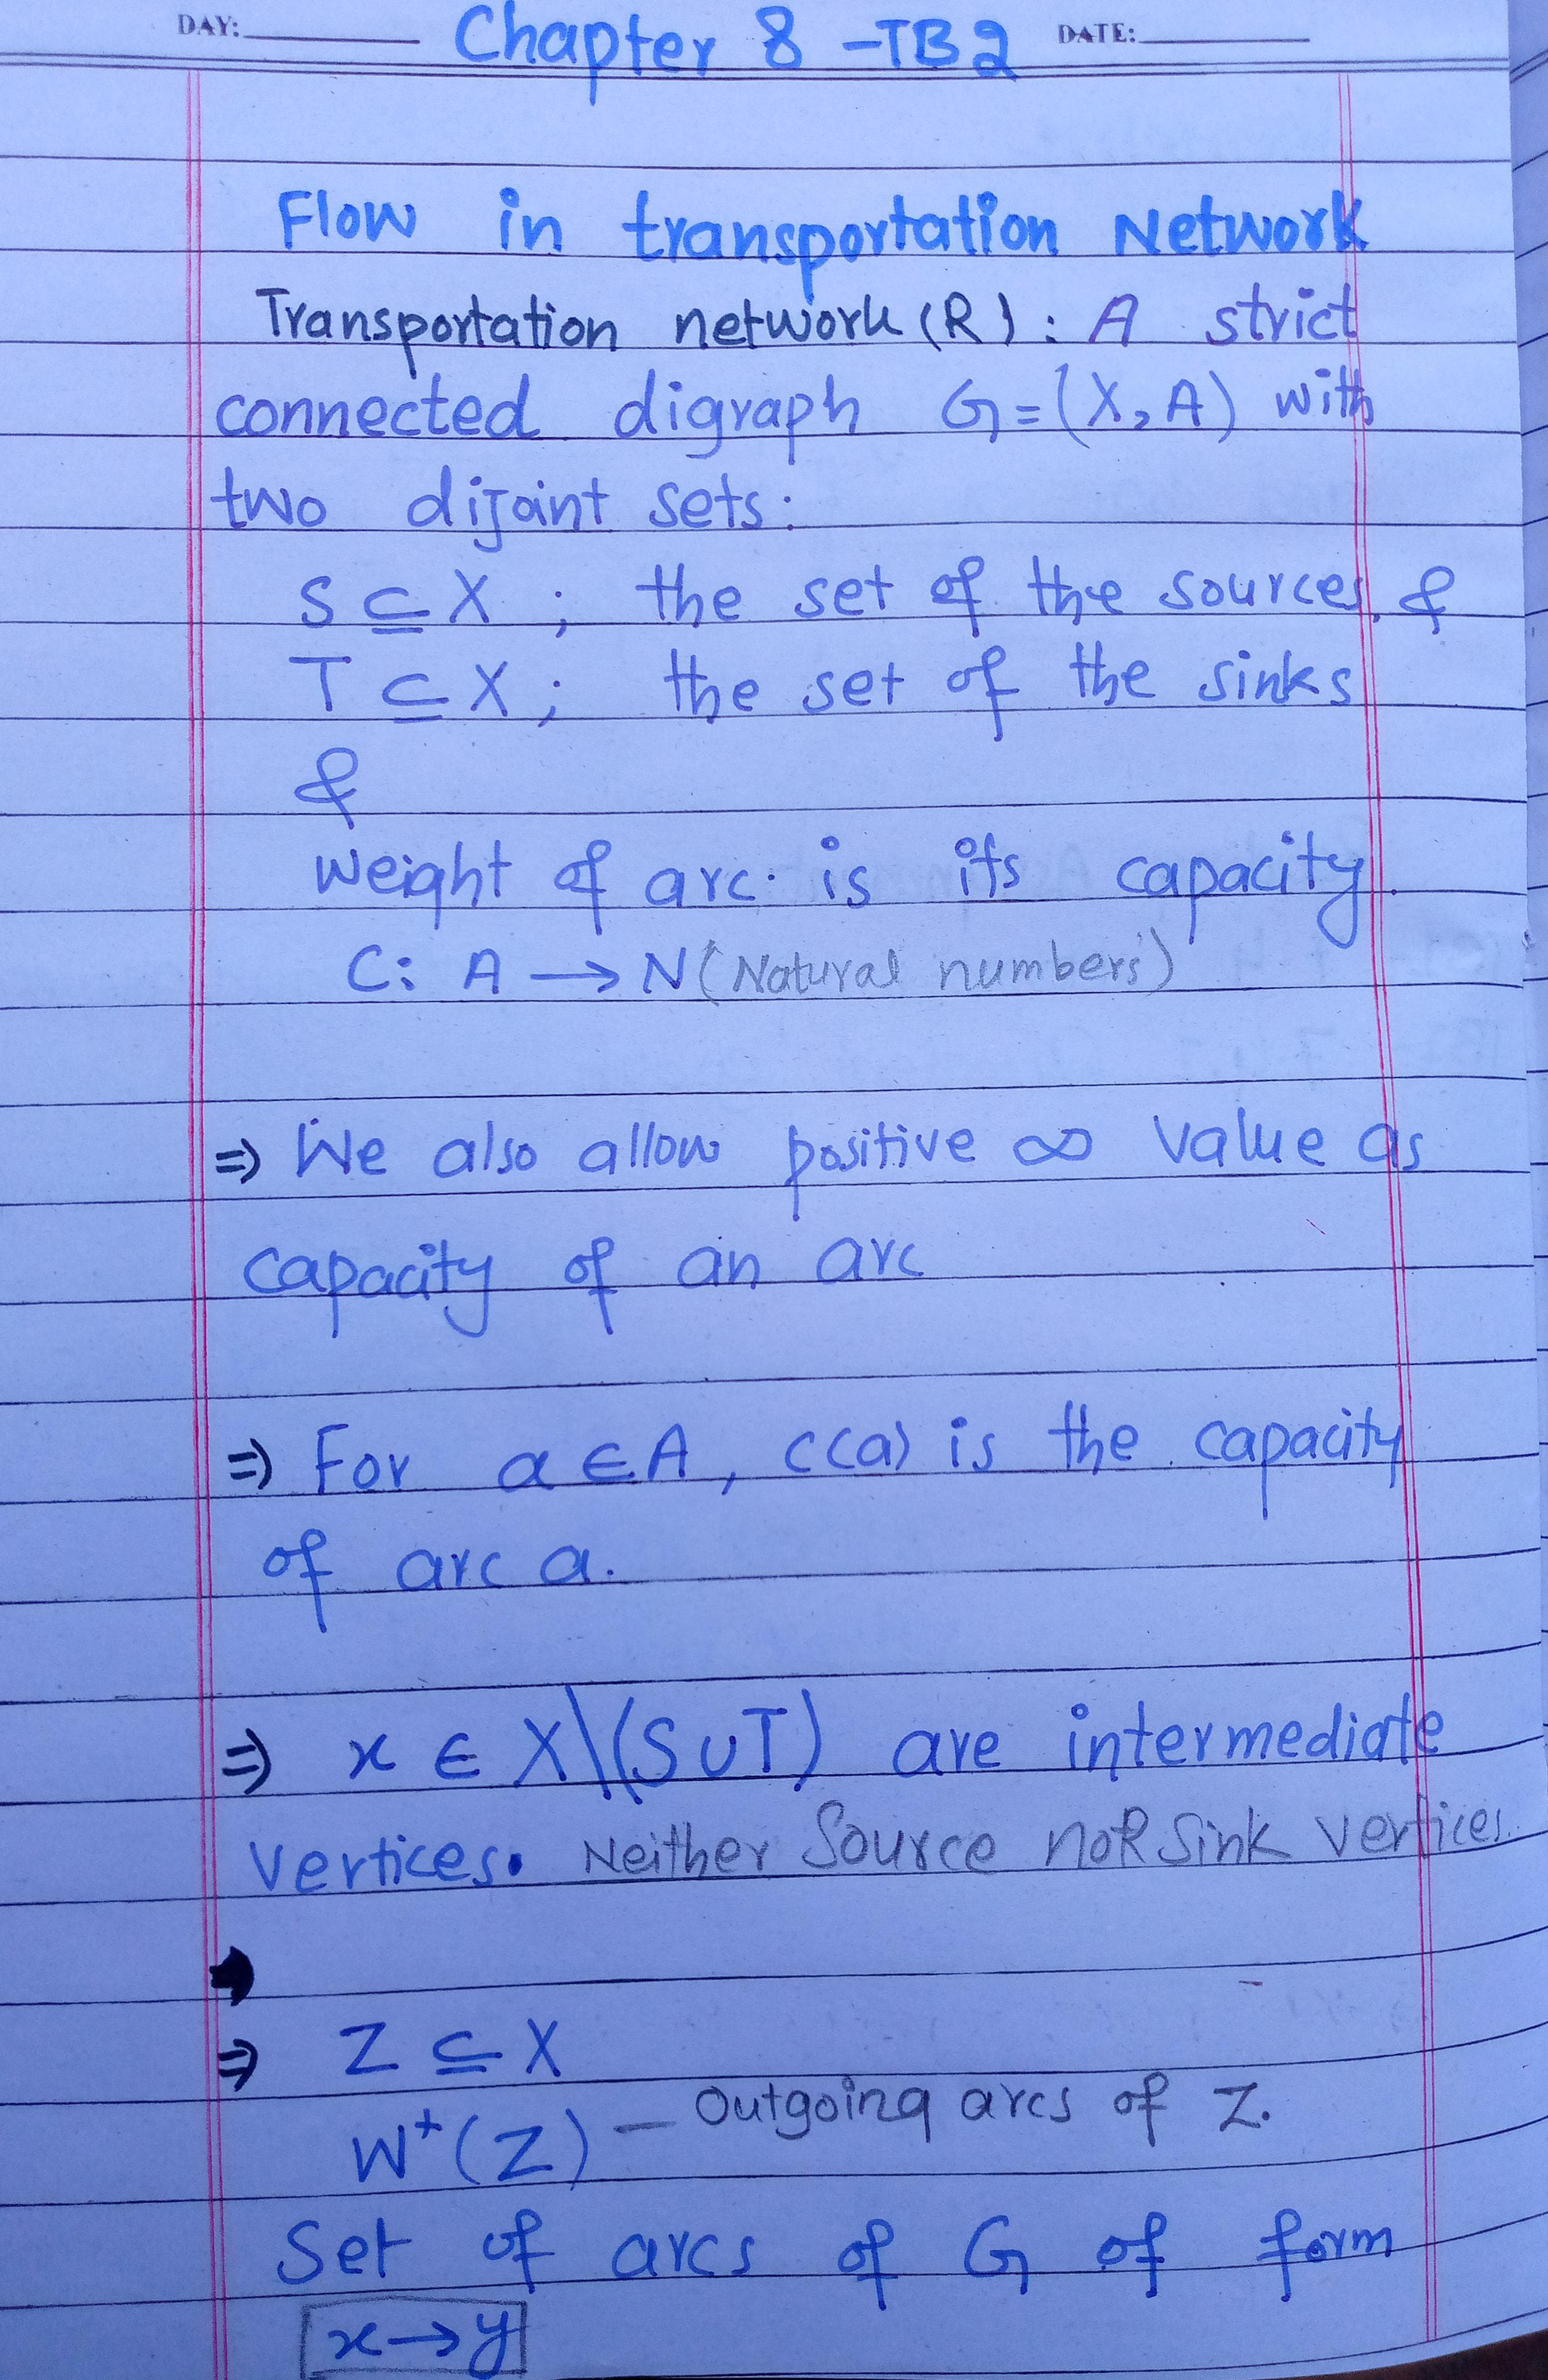 DAY: DATE:
Chapter 8 -TB2
Flow in transportation Network
Transportation network (R) : A strict
connected digraph G=(X, A) with
two dijoint sets:
S ⊆ X ; the set of the sources &
T ⊆ X ; the set of the sinks
&
weight of arc is its capacity.
C: A → N (Natural numbers)
⇒ We also allow positive ∞ value as
capacity of an arc
⇒ For a ∈ A, c(a) is the capacity
of arc a.
⇒ x ∈ X\(S ∪ T) are intermediate
vertices. Neither Source noR Sink vertices.
⇒ Z ⊆ X
W⁺(Z) – Outgoing arcs of Z.
Set of arcs of G of form
x → y